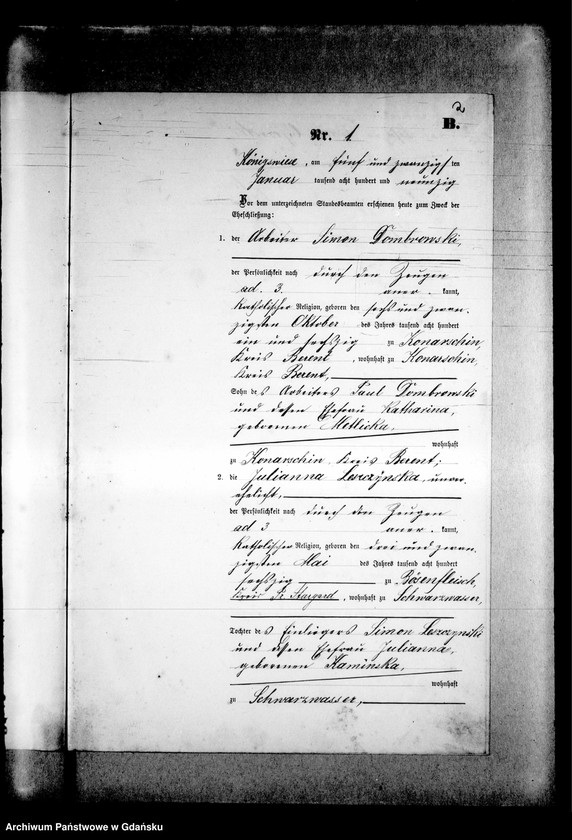 2
B.
Nr. 1
Königswiese, am fünf und zwanzigsten
Januar tausend acht hundert und neunzig
Vor dem unterzeichneten Standesbeamten erschienen heute zum Zweck der
Eheschließung:
1. der Arbeiter Simon Dombrowski,
der Persönlichkeit nach durch den Zeugen
ad. 3. aner. kannt,
katholischer Religion, geboren den sechs und zwan-
zigsten Oktober des Jahres tausend acht hundert
ein und sechszig zu Konarschin,
Kreis Berent, wohnhaft zu Konarschin,
Kreis Berent,
Sohn des Arbeiters Paul Dombrowski
und dessen Ehefrau Katharina,
geborenen Metlicka,
wohnhaft
zu Konarschin, Kreis Berent;
2. die Julianna Leszczynska, unver-
ehelicht,
der Persönlichkeit nach durch den Zeugen
ad 3 aner. kannt,
katholischer Religion, geboren den drei und zwan-
zigsten Mai des Jahres tausend acht hundert
sechszig zu Bösenfleisch,
Kreis Pr. Stargard, wohnhaft zu Schwarzwasser,
Tochter des Einliegers Simon Leszczynski
und dessen Ehefrau Julianna,
geborenen Kaminska,
wohnhaft
zu Schwarzwasser,
Archiwum Państwowe w Gdańsku